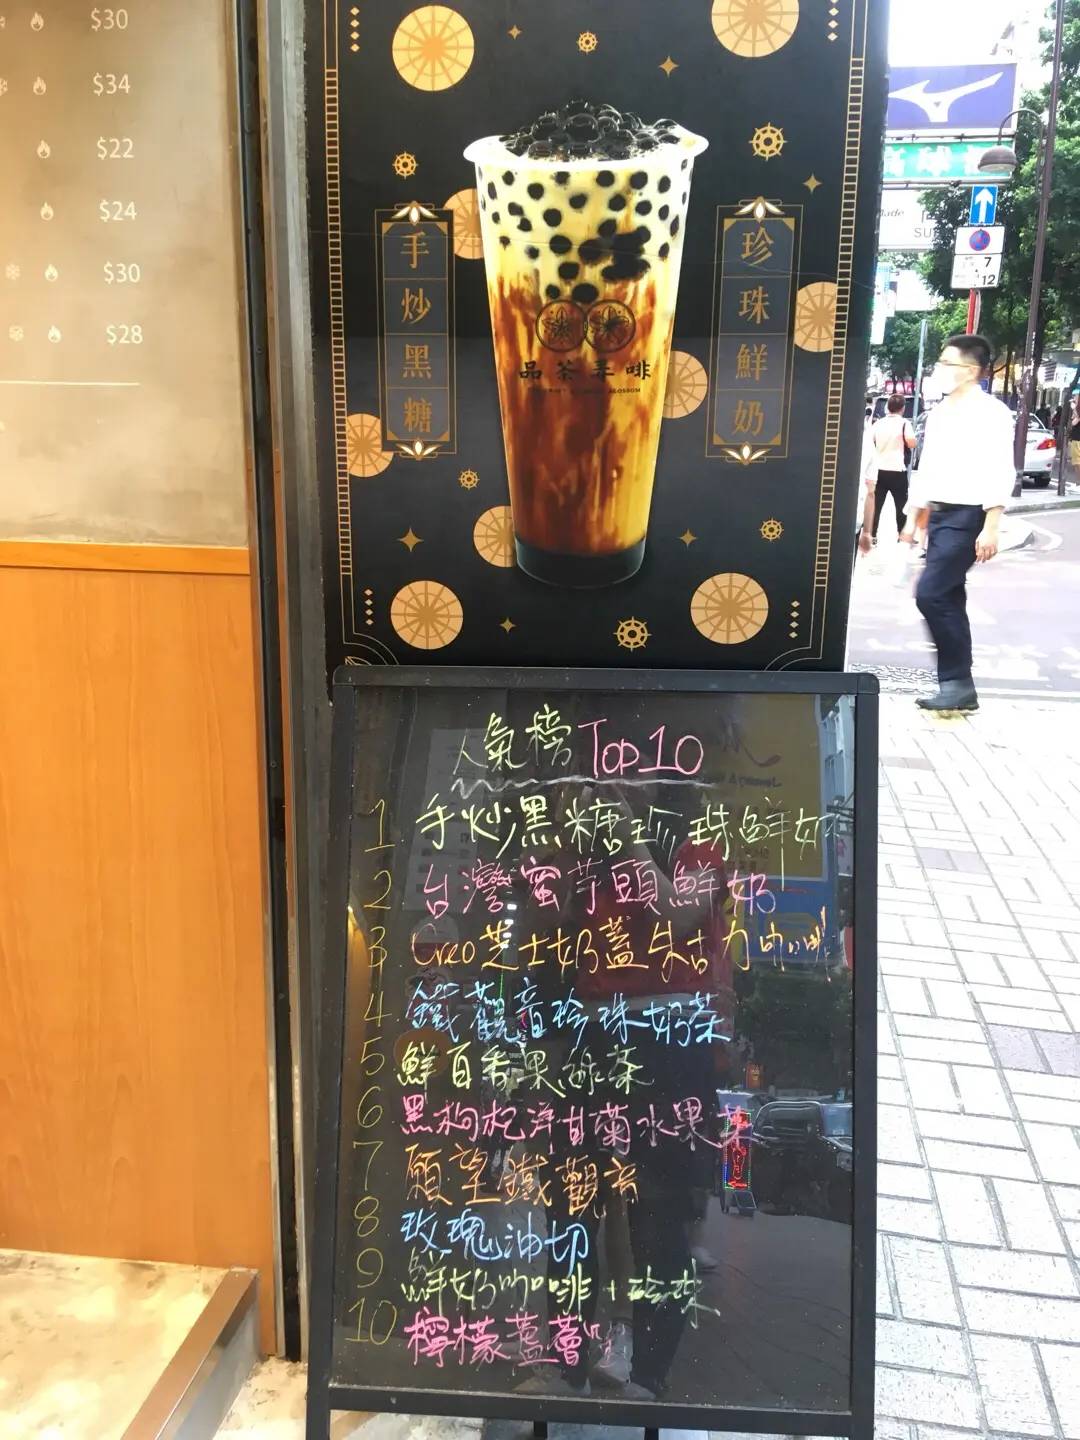 $30
$34
$22
$24
$30
$28
手炒黑糖
珍珠鮮奶
品茶手啡
人氣榜 Top 10
1 手炒黑糖珍珠鮮奶
2 台灣蜜芋頭鮮奶
3 Oreo芝士奶蓋朱古力咖啡
4 鐵觀音珍珠奶茶
5 鮮百香果綠茶
6 黑枸杞洋甘菊水果茶
7 願望鐵觀音
8 玫瑰油切
9 鮮奶咖啡+珍珠
10 檸檬蘆薈
7
12